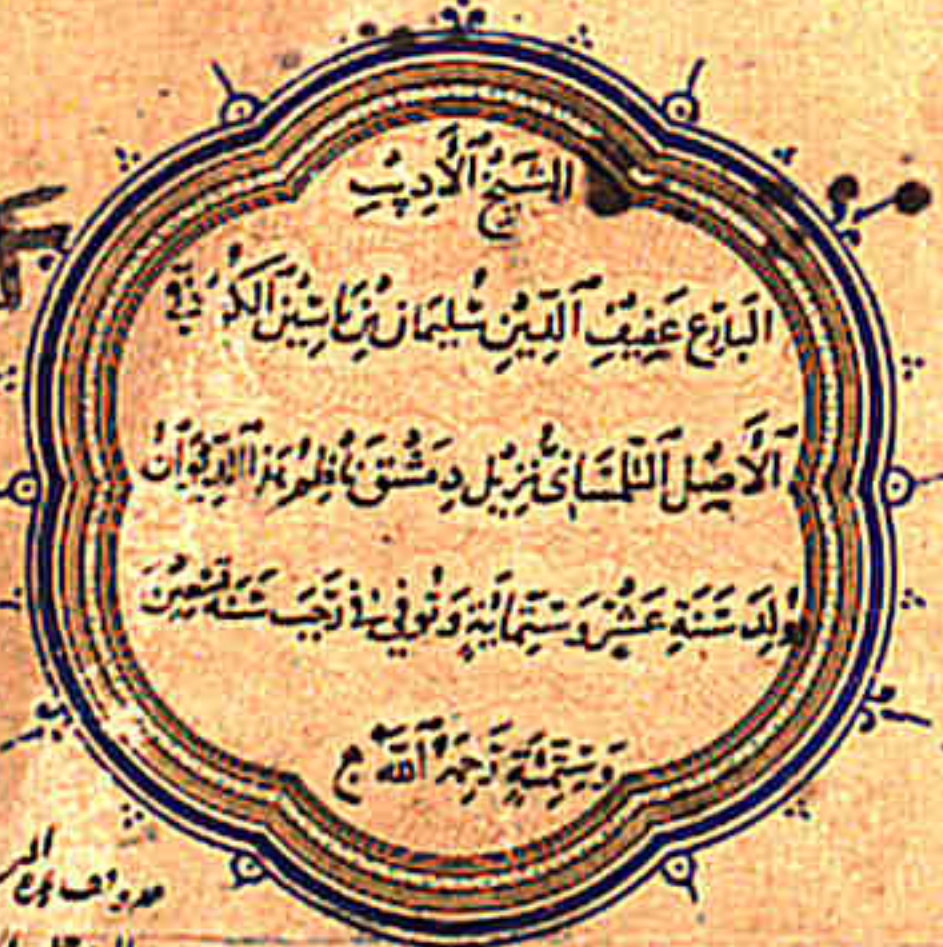 الشَيخُ الأَدِيبُ
البَارِع عَفِيفُ الدِّينِ سُليمَان بْنِ يَاسِين الكُوفيُّ
الأَصْلِ التِّلِمْسَانىُّ نَزِيل دِمَشْقَ نَاظِمُ هَذا الدِّيْوَان
وُلِدَ سَنَةِ عَشْرٍ وَ سِتِمائَةٍ وَتُوفي فى رَجَبَ سَنَة تِسْعِينَ
وَسِتِمئَةٍ رَحِمَهُ اللَّهُ